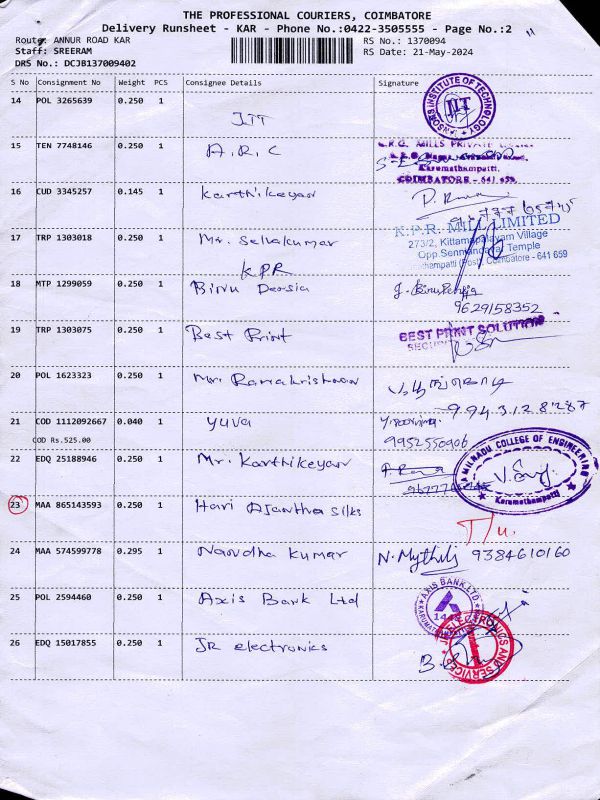 THE PROFESSIONAL COURIERS, COIMBATORE
Delivery Runsheet - KAR - Phone No.:0422-3505555 - Page No.:2
Route: ANNUR ROAD KAR
RS No.: 1370094
Staff: SREERAM
RS Date: 21-May-2024
DRS No.: DCJB137009402
S No Consignment No Weight PCS Consignee Details Signature
14 POL 3265639 0.250 1 JIT
INSTITUTE OF TECHNOLOGY
JIT
15 TEN 7748146 0.250 1 A.R.C
K.R.G. MILLS PRIVATE
Karumathampatti,
COIMBATORE - 641 659.
16 CUD 3345257 0.145 1 Karthikeyan
K.P.R. MILL LIMITED
17 TRP 1303018 0.250 1 Mr. Selvakumar
273/2, Kittampalayam Village
Opp.Sennandavar Temple
KPR
Coimbatore - 641 659
18 MTP 1299059 0.250 1 Binu Persia
9629158352
19 TRP 1303075 0.250 1 Best Print
BEST PRINT SOLUTION
20 POL 1623323 0.250 1 Mr. Ramakrishnan பூங்கொடி
9943128287
21 COD 1112092667 0.040 1 Yuva
COD Rs.525.00
9952550906
22 EDQ 25188946 0.250 1 Mr. Karthikeyan
TAMILNADU COLLEGE OF ENGINEERING
Karumathampatti
23 MAA 865143593 0.250 1 Hari Ajantha Silks
24 MAA 574599778 0.295 1 Nandha Kumar N. Mythili 9384610160
25 POL 2594460 0.250 1 Axis Bank Ltd
AXIS BANK LTD
26 EDQ 15017855 0.250 1 JR electronics
JR ELECTRONICS AND SERVICES